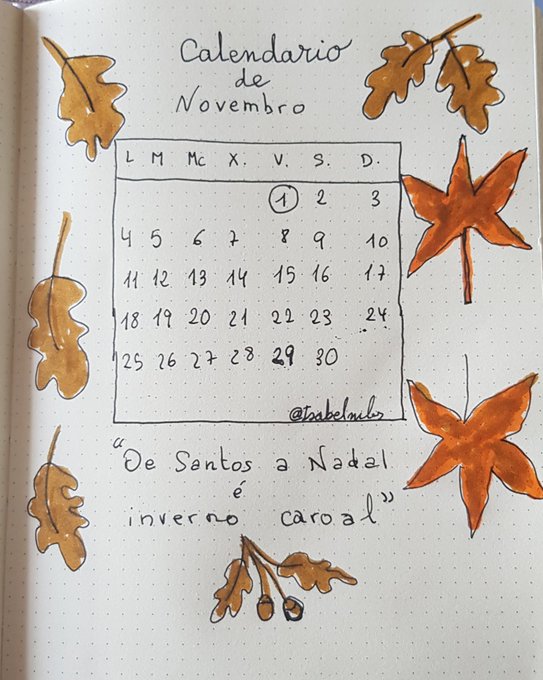 Calendario
de
Novembro
L M Mc X. V. S. D.
1 2 3
4 5 6 7 8 9 10
11 12 13 14 15 16 17
18 19 20 21 22 23 24
25 26 27 28 29 30
“De Santos a Nadal
é
inverno caroal”